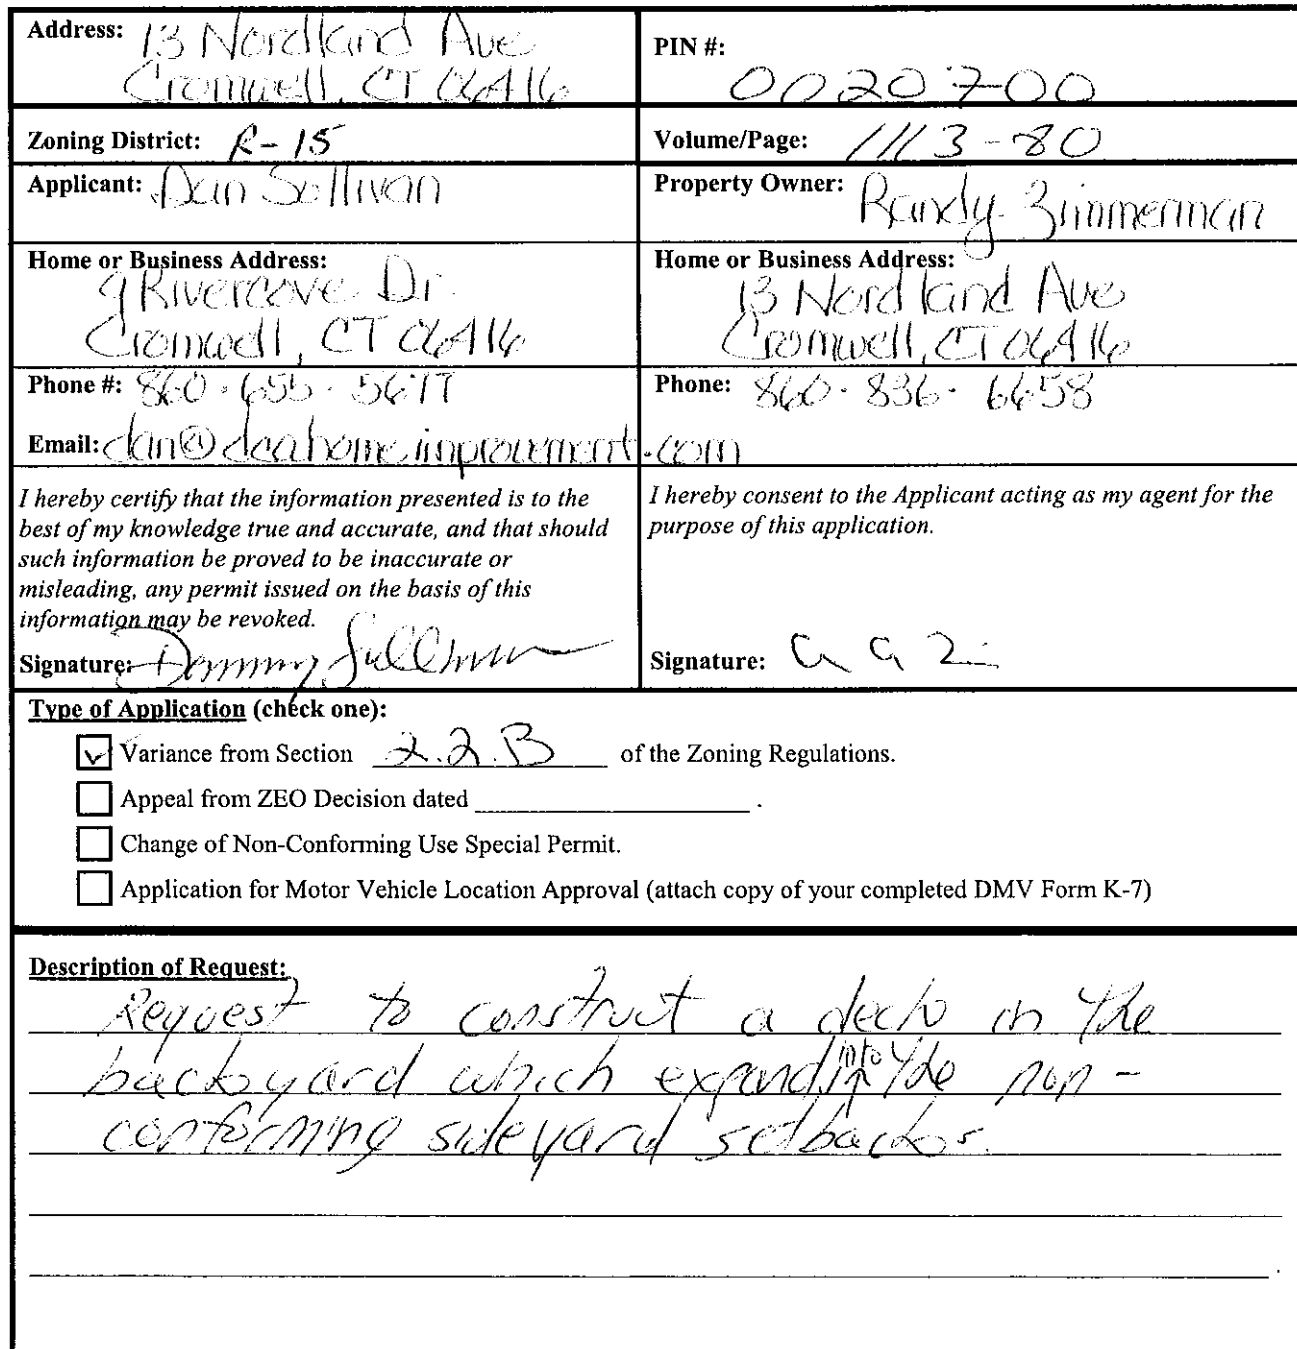 Address: 13 Nordland Ave
Cromwell, CT 06416
PIN #:
0020700
Zoning District: R-15
Volume/Page: 1113-80
Applicant: Dan Sullivan
Property Owner: Randy Zimmerman
Home or Business Address:
9 Rivercove Dr.
Cromwell, CT 06416
Home or Business Address:
13 Nordland Ave
Cromwell, CT 06416
Phone #: 860-655-5677
Phone: 860-836-6658
Email: dan@dcahomeimprovement.com
I hereby certify that the information presented is to the
best of my knowledge true and accurate, and that should
such information be proved to be inaccurate or
misleading, any permit issued on the basis of this
information may be revoked.
Signature: Sullivan
I hereby consent to the Applicant acting as my agent for the
purpose of this application.
Signature:
Type of Application (check one):
Variance from Section 2.2.B of the Zoning Regulations.
Appeal from ZEO Decision dated .
Change of Non-Conforming Use Special Permit.
Application for Motor Vehicle Location Approval (attach copy of your completed DMV Form K-7)
Description of Request:
Request to construct a deck in the
backyard which expand into the non-
conforming sideyard setbacks.